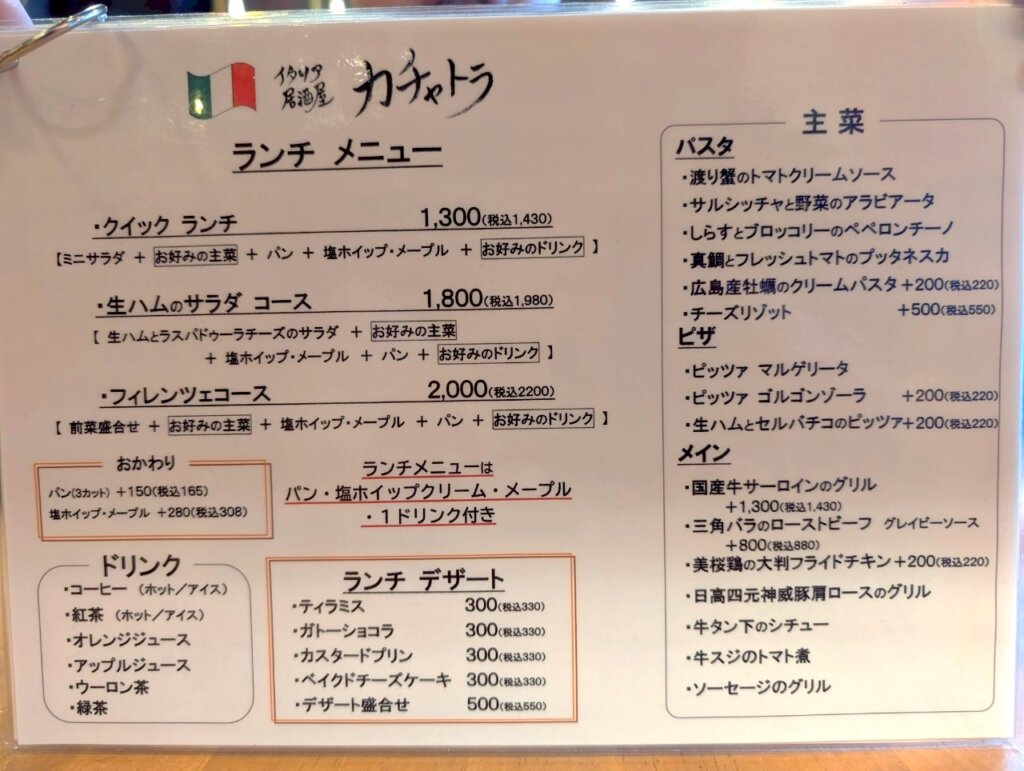 イタリア
居酒屋
カチャトラ
ランチ メニュー
・クイック ランチ 1,300(税込1,430)
【ミニサラダ + お好みの主菜 + パン + 塩ホイップ・メープル + お好みのドリンク 】
・生ハムのサラダ コース 1,800(税込1,980)
【 生ハムとラスパドゥーラチーズのサラダ + お好みの主菜
+ 塩ホイップ・メープル + パン + お好みのドリンク 】
・フィレンツェコース 2,000(税込2200)
【 前菜盛合せ + お好みの主菜 + 塩ホイップ・メープル + パン + お好みのドリンク 】
おかわり
パン(3カット) +150(税込165)
塩ホイップ・メープル +280(税込308)
ランチメニューは
パン・塩ホイップクリーム・メープル
・1ドリンク付き
ドリンク
・コーヒー (ホット/アイス)
・紅茶 (ホット/アイス)
・オレンジジュース
・アップルジュース
・ウーロン茶
・緑茶
ランチ デザート
・ティラミス 300(税込330)
・ガトーショコラ 300(税込330)
・カスタードプリン 300(税込330)
・ベイクドチーズケーキ 300(税込330)
・デザート盛合せ 500(税込550)
主菜
パスタ
・渡り蟹のトマトクリームソース
・サルシッチャと野菜のアラビアータ
・しらすとブロッコリーのペペロンチーノ
・真鯛とフレッシュトマトのプッタネスカ
・広島産牡蠣のクリームパスタ+200(税込220)
・チーズリゾット +500(税込550)
ピザ
・ピッツァ マルゲリータ
・ピッツァ ゴルゴンゾーラ +200(税込220)
・生ハムとセルバチコのピッツァ+200(税込220)
メイン
・国産牛サーロインのグリル
+1,300(税込1,430)
・三角バラのローストビーフ グレイビーソース
+800(税込880)
・美桜鶏の大判フライドチキン+200(税込220)
・日高四元神威豚肩ロースのグリル
・牛タン下のシチュー
・牛スジのトマト煮
・ソーセージのグリル